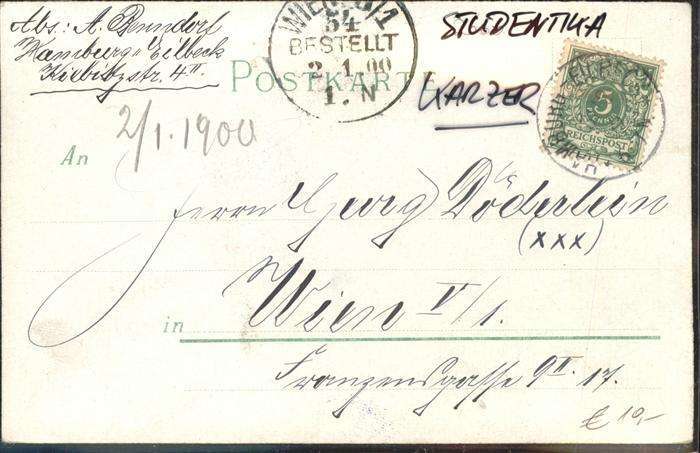 Abs: A. Benndorf
Hamburg-Eilbeck
Kiebitzstr. 4 II.
WIEN 5/1
54
BESTELLT
2.1.00
1. N
STUDENTIKA
POSTKARTE
KARZER
5
PFENNIG
REICHSPOST
2/1. 1900
An
Herrn Georg Döderlein
(xxx)
in
Wien V/1.
Franzensgasse 9 II. 17.
€ 10,-